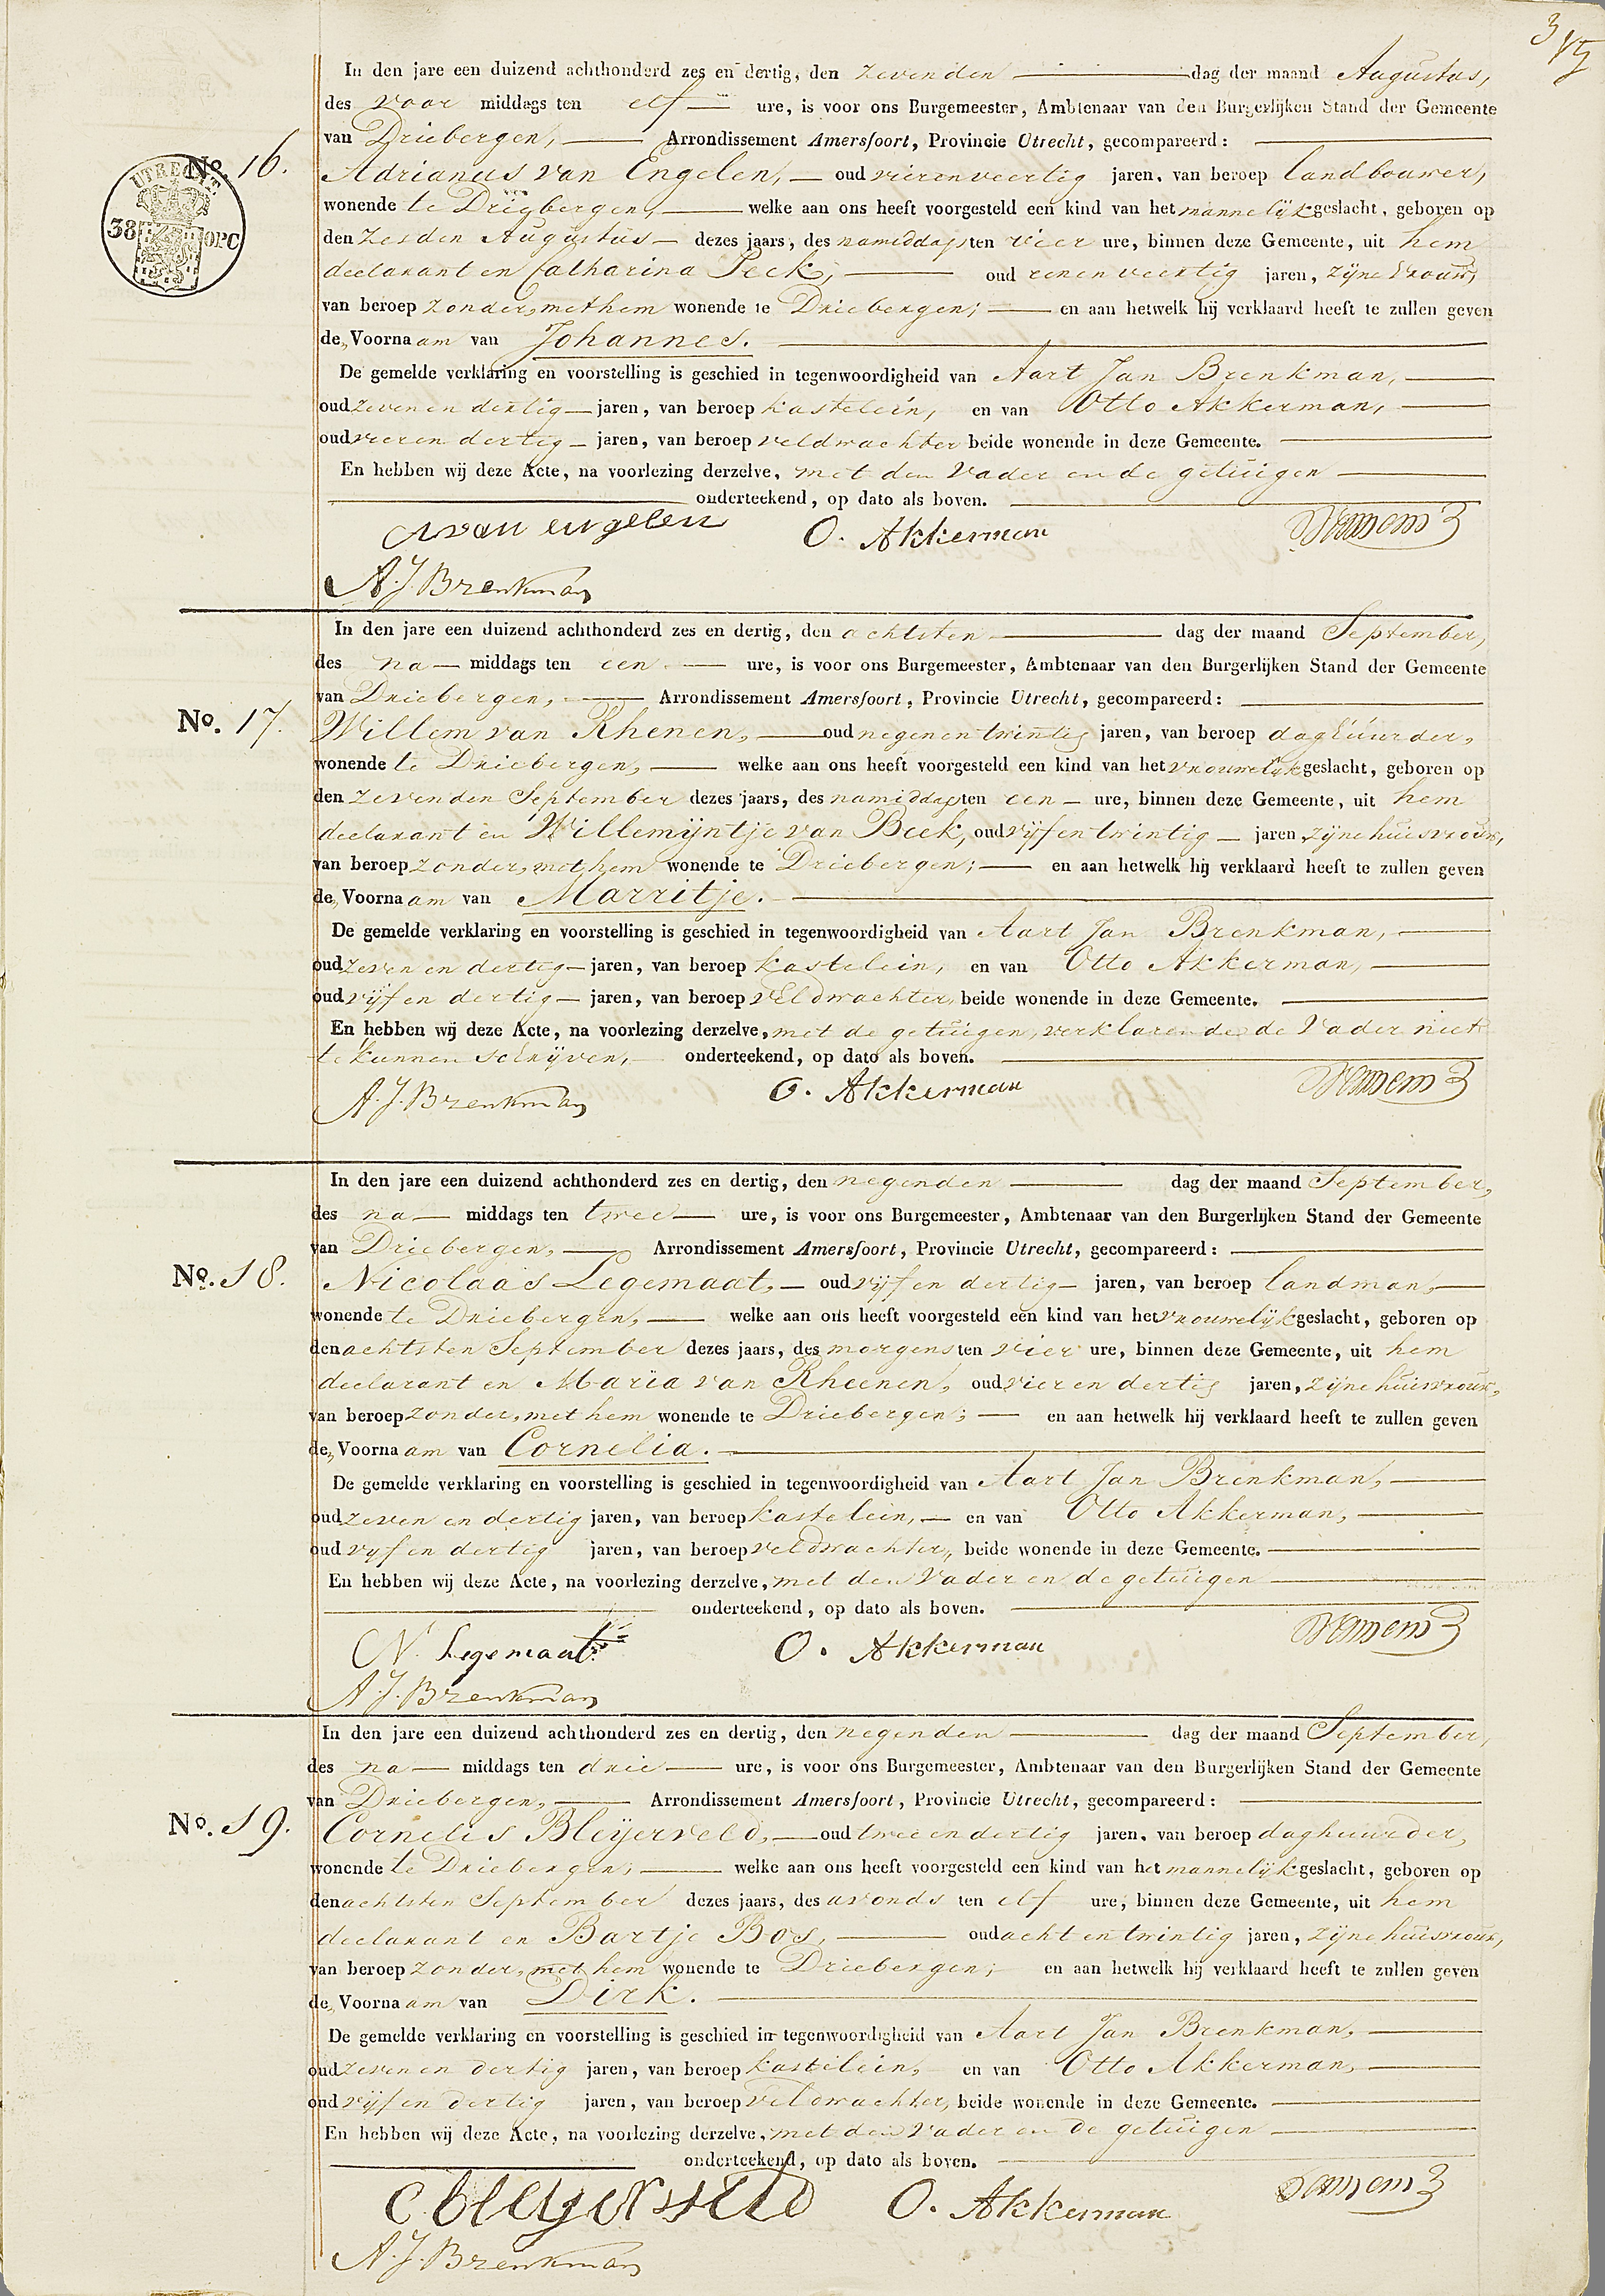 3
In den jare een duizend achthonderd zes en dertig, den zevenden dag der maand Augustus,
des voor middags ten elf ure, is voor ons Burgemeester, Ambtenaar van den Burgerlijken Stand der Gemeente
van Driebergen, Arrondissement Amersfoort, Provincie Utrecht, gecompareerd:
No. 16.
UTRECHT
38 OPC
Adrianus van Engelen, oud vierenveertig jaren, van beroep landbouwer,
wonende te Driebergen, welke aan ons heeft voorgesteld een kind van het mannelijk geslacht, geboren op
den zesden Augustus dezes jaars, des namiddags ten vier ure, binnen deze Gemeente, uit hem
declarant en Catharina Peek, oud eenenveertig jaren, zijne vrouw,
van beroep zonder, met hem wonende te Driebergen; en aan hetwelk hij verklaard heeft te zullen geven
de, Voornaam van Johannes.
De gemelde verklaring en voorstelling is geschied in tegenwoordigheid van Aart Jan Brenkman,
oud zeven en dertig jaren, van beroep kastelein, en van Otto Akkerman,
oud vier en dertig jaren, van beroep veldwachter beide wonende in deze Gemeente.
En hebben wij deze Acte, na voorlezing derzelve, met den Vader en de getuigen
onderteekend, op dato als boven.
A van engelen O. Akkerman
A. J. Brenkman
In den jare een duizend achthonderd zes en dertig, den achtsten dag der maand September,
des na middags ten een ure, is voor ons Burgemeester, Ambtenaar van den Burgerlijken Stand der Gemeente
van Driebergen, Arrondissement Amersfoort, Provincie Utrecht, gecompareerd:
No. 17.
Willem van Rhenen, oud negenen twintig jaren, van beroep daghuurder,
wonende te Driebergen, welke aan ons heeft voorgesteld een kind van het vrouwelijk geslacht, geboren op
den zevenden September dezes jaars, des namiddags ten een ure, binnen deze Gemeente, uit hem
declarant en Willemijntje van Beek, oud vijf en twintig jaren, zijne huisvrouw,
van beroep zonder, met hem wonende te Driebergen; en aan hetwelk hij verklaard heeft te zullen geven
de, Voornaam van Marritje.
De gemelde verklaring en voorstelling is geschied in tegenwoordigheid van Aart Jan Brenkman,
oud zeven en dertig jaren, van beroep kastelein, en van Otto Akkerman,
oud vijf en dertig jaren, van beroep veldwachter, beide wonende in deze Gemeente.
En hebben wij deze Acte, na voorlezing derzelve, met de getuigen, verklarende de Vader niet
te kunnen schrijven, onderteekend, op dato als boven.
A. J. Brenkman O. Akkerman
In den jare een duizend achthonderd zes en dertig, den negenden dag der maand September,
des na middags ten twee ure, is voor ons Burgemeester, Ambtenaar van den Burgerlijken Stand der Gemeente
van Driebergen, Arrondissement Amersfoort, Provincie Utrecht, gecompareerd:
No. 18.
Nicolaas Legemaat, oud vijf en dertig jaren, van beroep landman,
wonende te Driebergen, welke aan ons heeft voorgesteld een kind van het vrouwelijk geslacht, geboren op
den achtsten September dezes jaars, des morgens ten vier ure, binnen deze Gemeente, uit hem
declarant en Maria van Rheenen, oud vier en dertig jaren, zijne huisvrouw,
van beroep zonder, met hem wonende te Driebergen; en aan hetwelk hij verklaard heeft te zullen geven
de, Voornaam van Cornelia.
De gemelde verklaring en voorstelling is geschied in tegenwoordigheid van Aart Jan Brenkman,
oud zeven en dertig jaren, van beroep kastelein, en van Otto Akkerman,
oud vijf en dertig jaren, van beroep veldwachter, beide wonende in deze Gemeente.
En hebben wij deze Acte, na voorlezing derzelve, met den Vader en de getuigen
onderteekend, op dato als boven.
N. Legemaat O. Akkerman
A. J. Brenkman
In den jare een duizend achthonderd zes en dertig, den negenden dag der maand September,
des na middags ten drie ure, is voor ons Burgemeester, Ambtenaar van den Burgerlijken Stand der Gemeente
van Driebergen, Arrondissement Amersfoort, Provincie Utrecht, gecompareerd:
No. 19.
Cornelis Bleijerveld, oud twee en dertig jaren, van beroep daghuurder,
wonende te Driebergen, welke aan ons heeft voorgesteld een kind van het mannelijk geslacht, geboren op
den achtsten September dezes jaars, des avonds ten elf ure, binnen deze Gemeente, uit hem
declarant en Bartje Bos, oud acht en twintig jaren, zijne huisvrouw,
van beroep zonder, met hem wonende te Driebergen; en aan hetwelk hij verklaard heeft te zullen geven
de, Voornaam van Dirk.
De gemelde verklaring en voorstelling is geschied in tegenwoordigheid van Aart Jan Brenkman,
oud zeven en dertig jaren, van beroep kastelein, en van Otto Akkerman,
oud vijf en dertig jaren, van beroep veldwachter, beide wonende in deze Gemeente.
En hebben wij deze Acte, na voorlezing derzelve, met den Vader en de getuigen
onderteekend, op dato als boven.
C. bleyerveld O. Akkerman
A. J. Brenkman